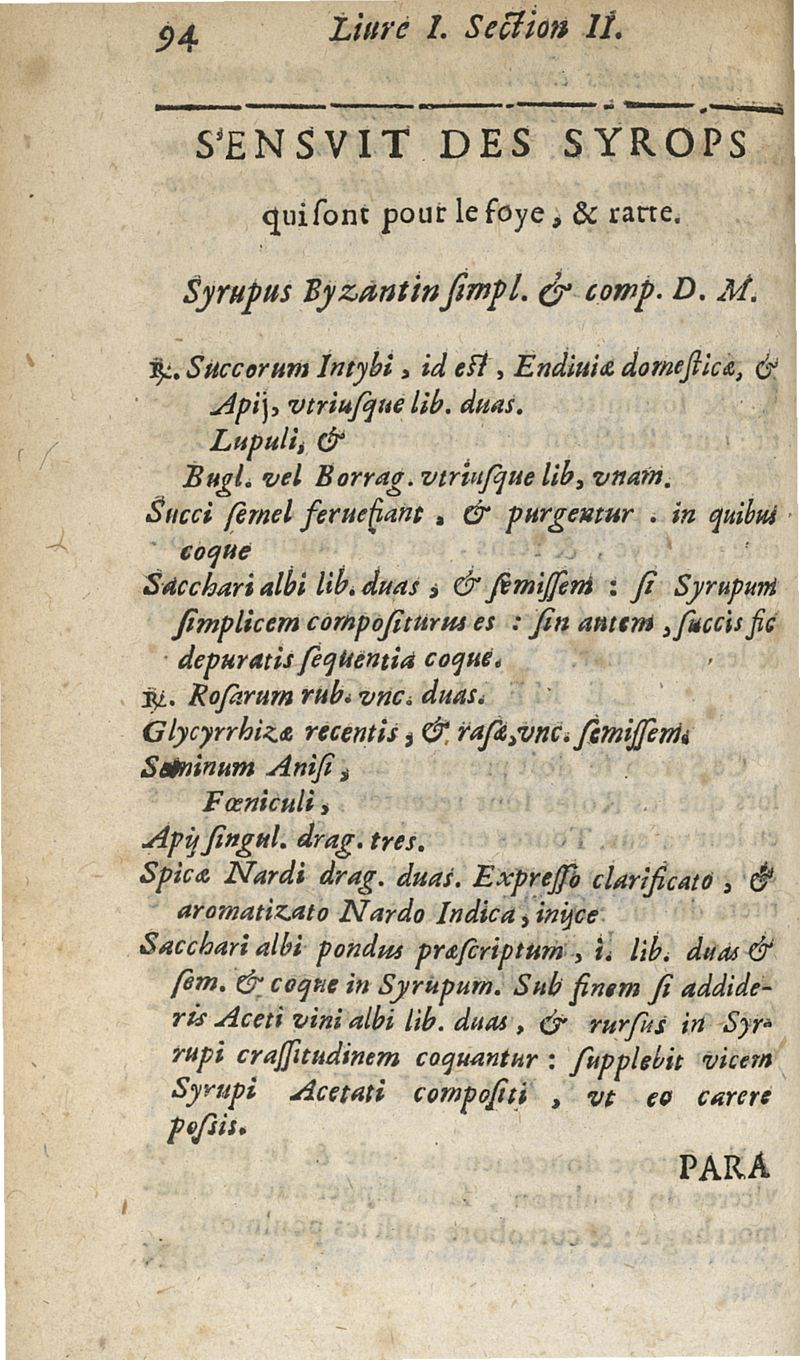 94 Liure I. Section II.
S'ENSVIT DES SYROPS
qui ſont pour le foye, & ratte.
Syrupus Byzantin ſimpl. & comp. D. M.
℞. Succorum Intybi, id est, Endiuiæ domeſticæ, &
Apij, vtriuſque lib. duas.
Lupuli, &
Bugl. vel Borrag. vtriuſque lib, vnam.
Succi ſemel feruefiant, & purgentur. in quibus
coque
Sacchari albi lib. duas, & ſemiſſem : ſi Syrupum
ſimplicem compoſiturus es : ſin autem, ſuccis ſic
depuratis ſequentia coque.
℞. Roſarum rub. vnc. duas.
Glycyrrhizæ recentis, & raſæ, vnc. ſemiſſem.
Seminum Aniſi,
Fœniculi,
Apij ſingul. drag. tres.
Spicæ Nardi drag. duas. Expreſſo clarificato, &
aromatizato Nardo Indica, inijce
Sacchari albi pondus præſcriptum, i. lib. duas &
ſem. & coque in Syrupum. Sub finem ſi addide-
ris Aceti vini albi lib. duas, & rurſus in Syr-
rupi craſſitudinem coquantur : ſupplebit vicem
Syrupi Acetati compoſiti, vt eo carere
poſsis.
PARA